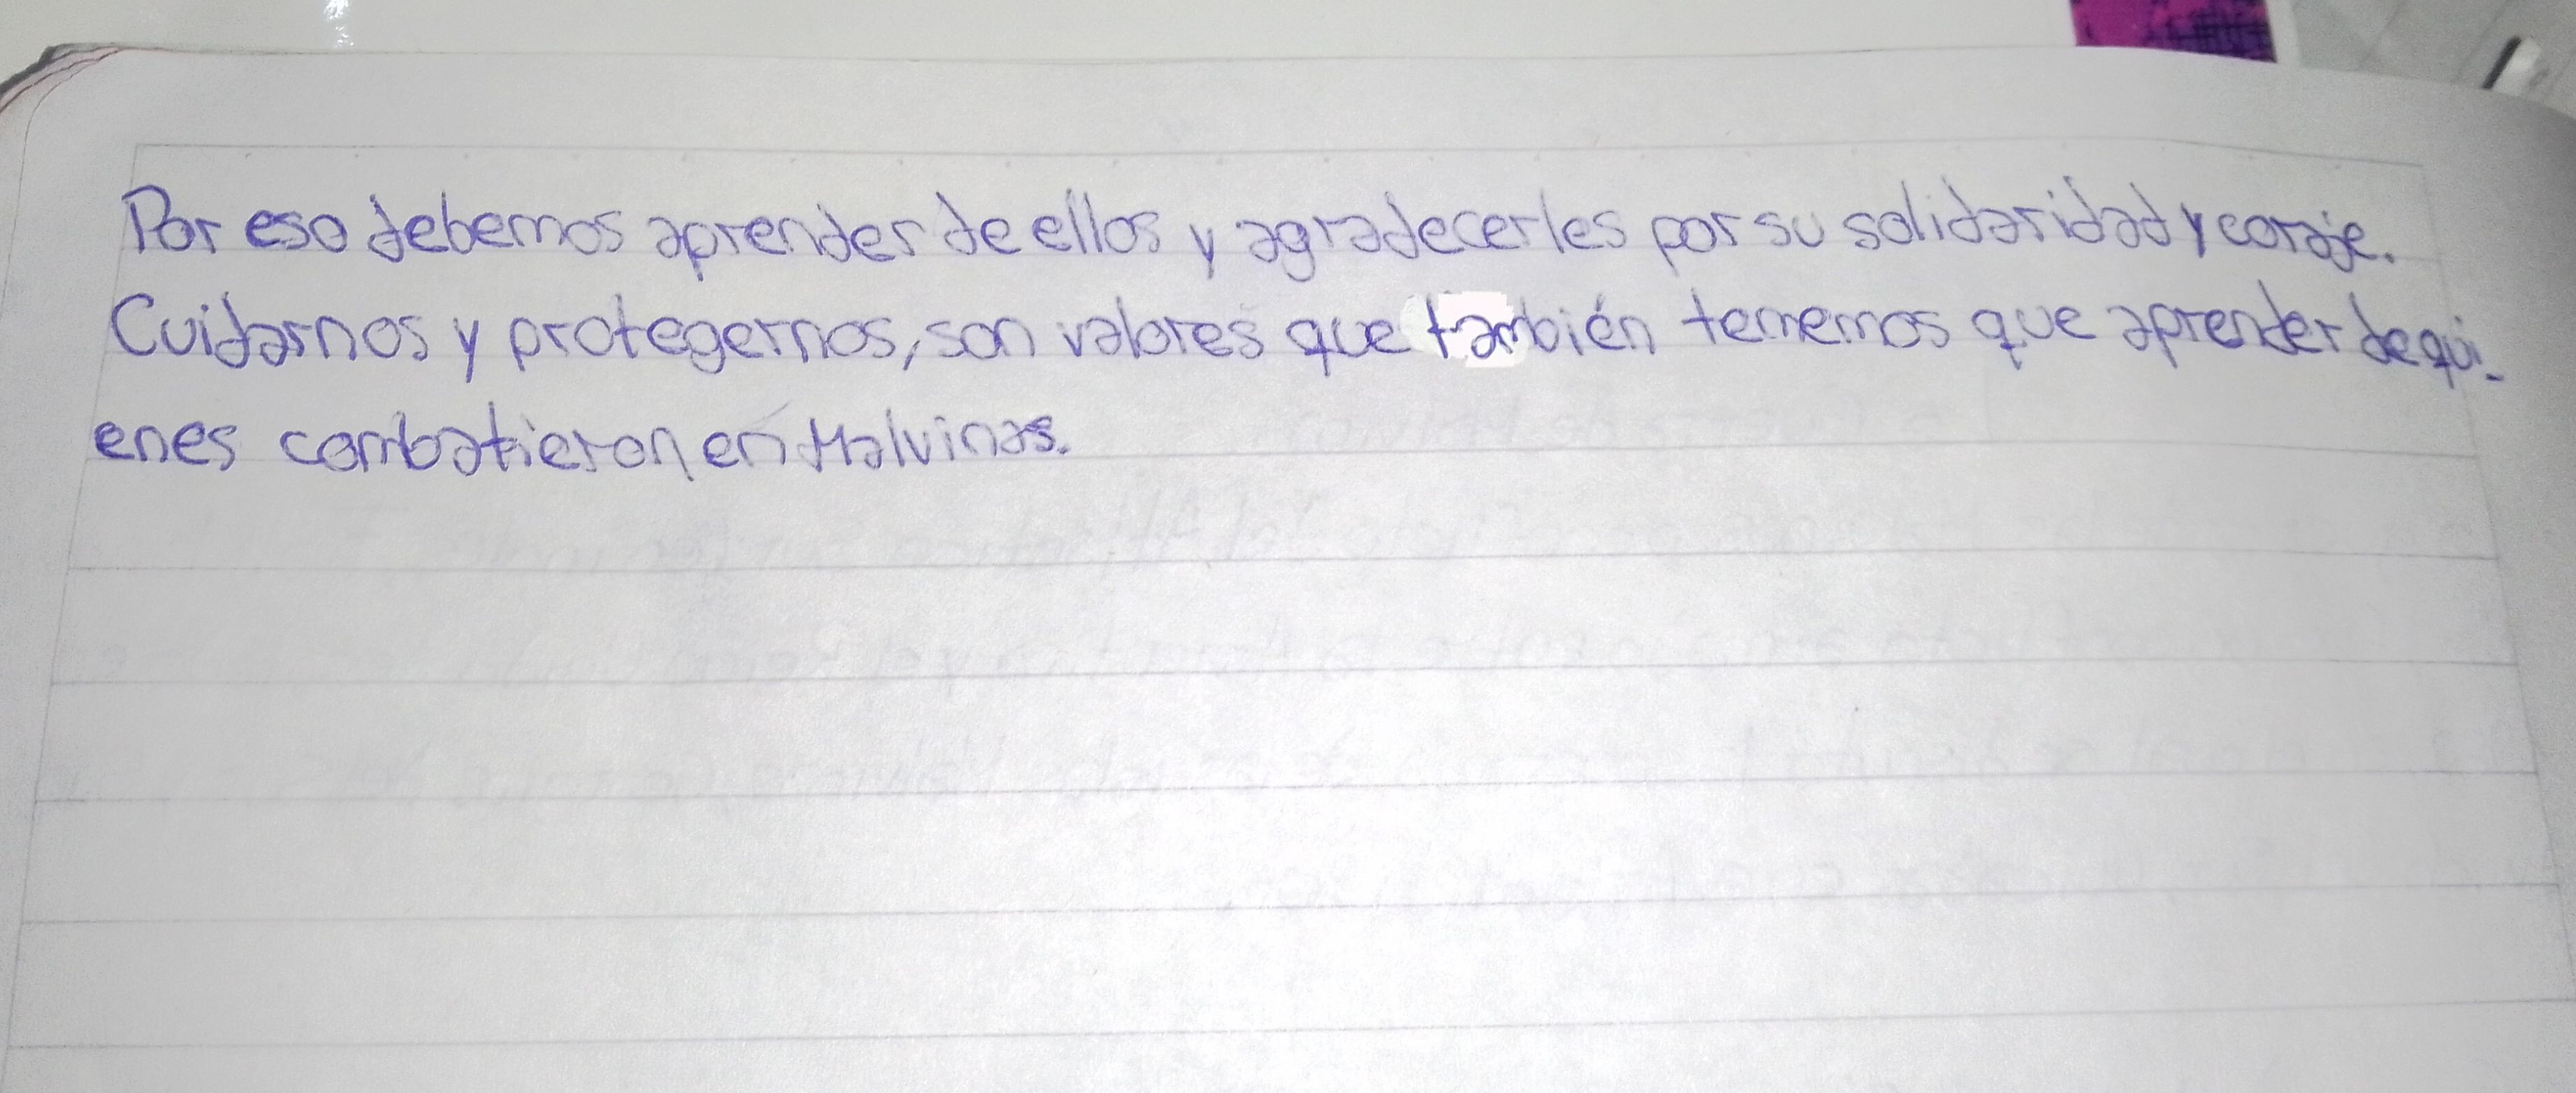 Por eso debemos aprender de ellos y agradecerles por su solidaridad y coraje.
Cuidarnos y protegernos, son valores que también tememos que aprender de qui-
enes combatieron en Malvinas.